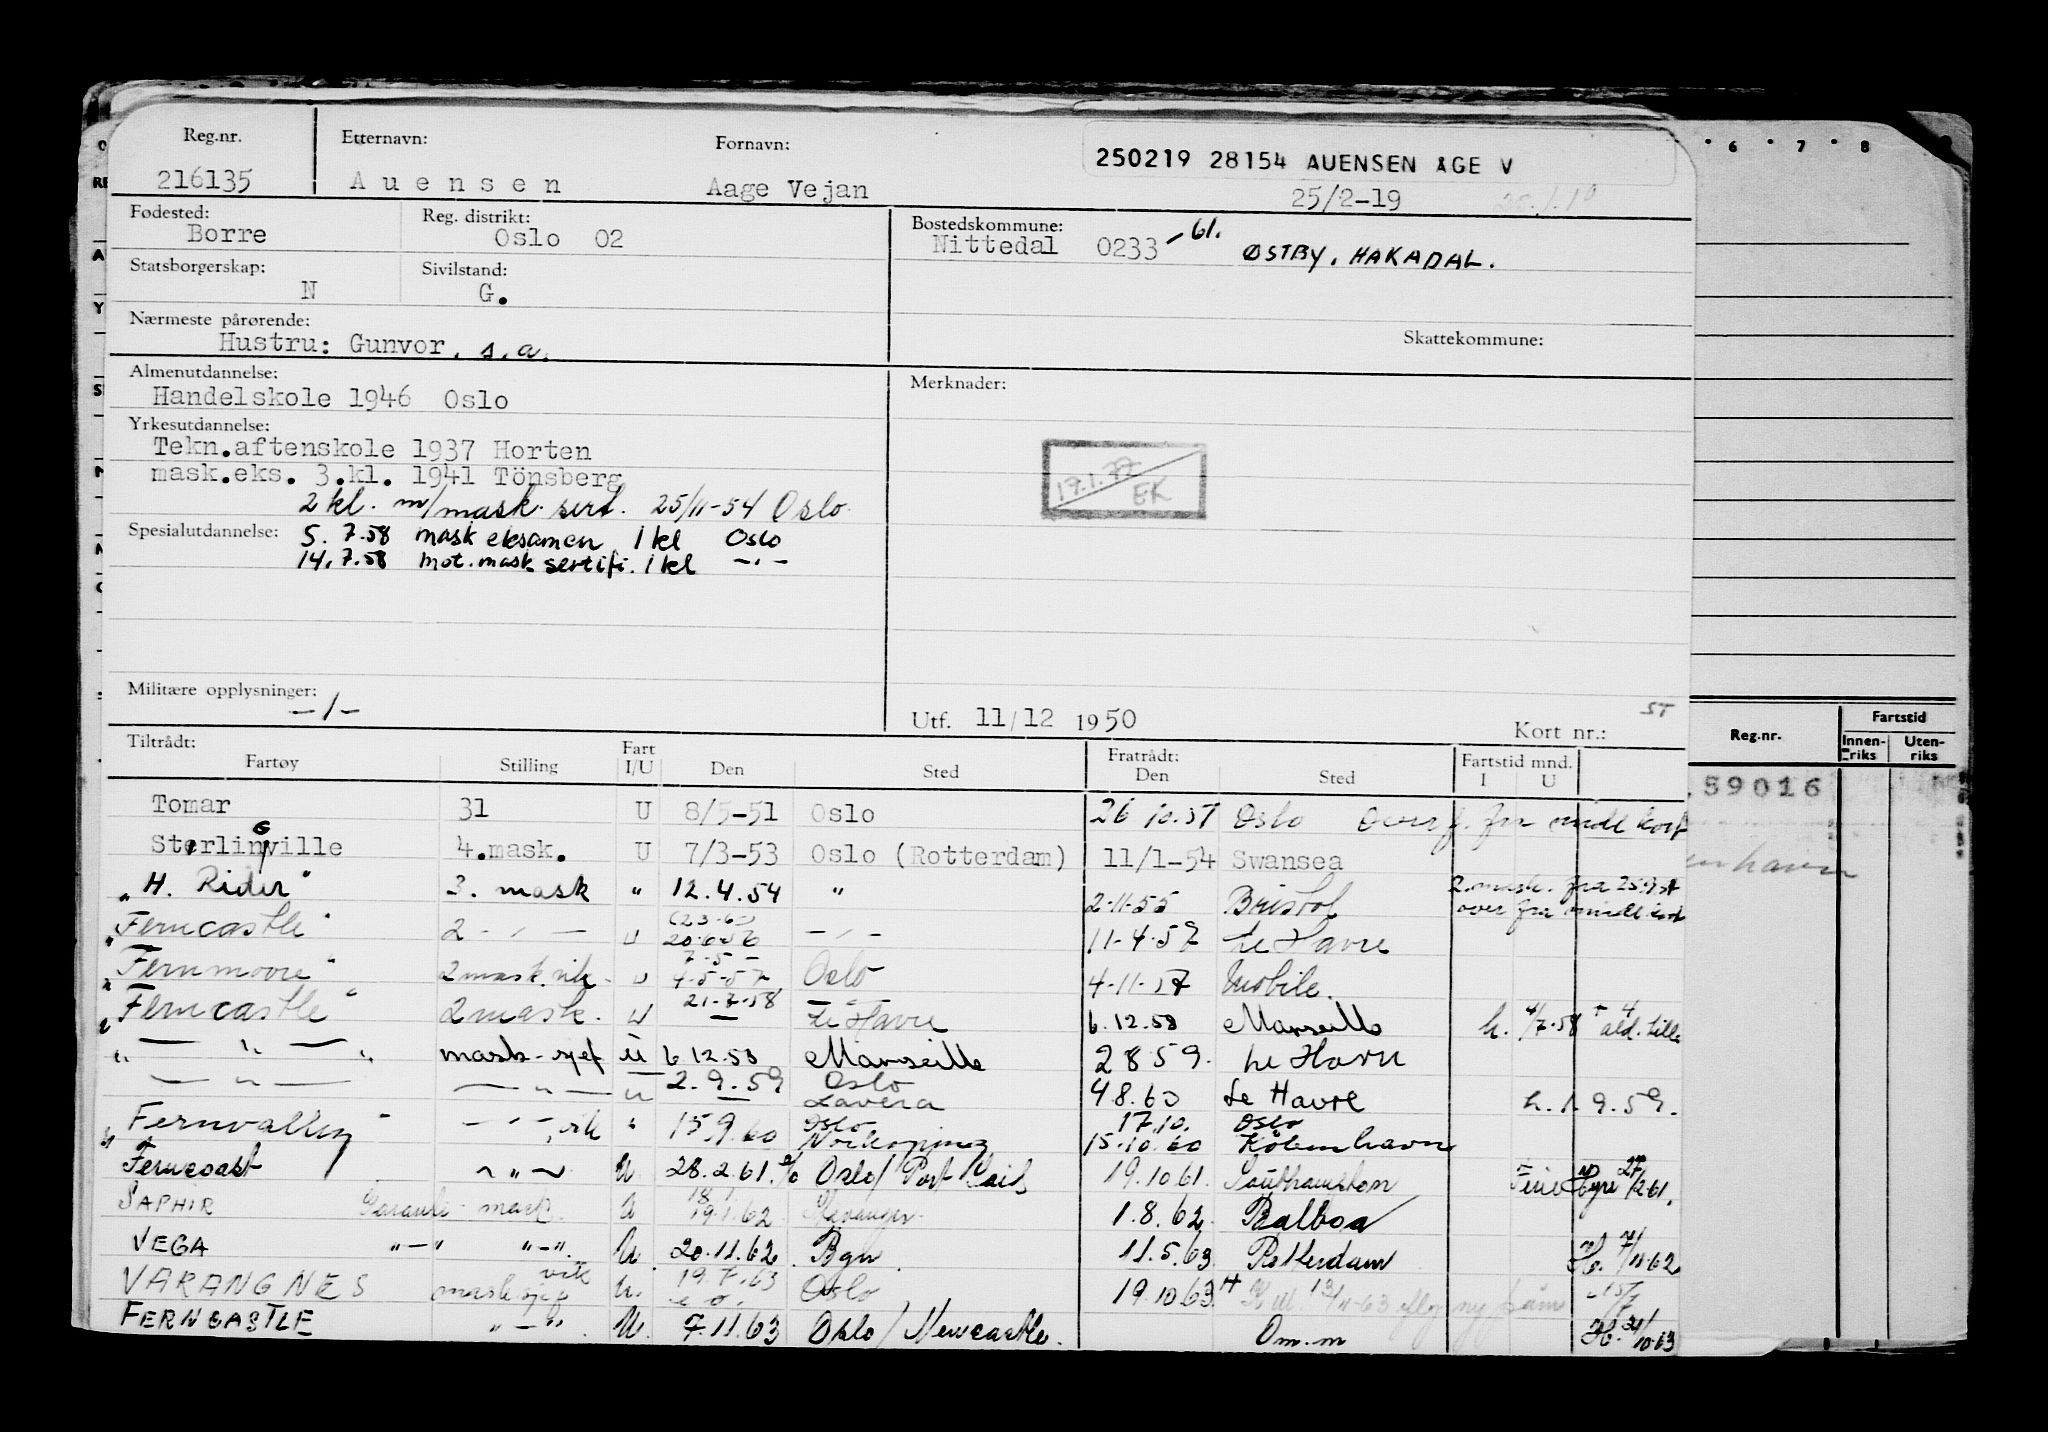 Reg.nr. Etternavn: Fornavn: 250219 28154 AUENSEN ÅGE V
216135 Auensen Aage Vejan 25/2-19
Fødested: Reg. distrikt: Bostedskommune:
Borre Oslo 02 Nittedal 0233 -61. ØSTBY, HAKADAL.
Statsborgerskap: Sivilstand:
N G.
Nærmeste pårørende: Skattekommune:
Hustru: Gunvor. s.a.
Almenutdannelse: Merknader:
Handelskole 1946 Oslo
Yrkesutdannelse:
Tekn.aftenskole 1937 Horten
mask.eks. 3.kl. 1941 Tönsberg
19.1.77 EK
2 kl. m/mask. sert. 25/11-54 Oslo.
Spesialutdannelse: 5. 7.58 mask eksamen 1 kl Oslo
14.7.58 mot.mask sertifi. 1 kl -"-
Militære opplysninger:
-/-
Utf. 11/12 1950 Kort nr.: ST
Tiltrådt: Fratrådt:
Fartøy Stilling Fart I/U Den Sted Den Sted Fartstid mnd. I U
Tomar 31 U 8/5-51 Oslo 26 10.51 Oslo Overf. fra midl kort
SterlinGville 4.mask. U 7/3-53 Oslo (Rotterdam) 11/1-54 Swansea
"H. Rider" 3. mask " 12.4.54 " 2-11-55 Bristol 2. mask. fra 25.9.54 over fra midl kort
"Ferncastle" 2 -"- U 20.6.56 -"- 11-4-57 Le Havre
"Fernmoore" 2 mask. vik. U 7-5- 4-5-57 Oslo 4-11-57 Mobile.
"Ferncastle" 2 mask. U 21-7-58 Le Havre 6.12.58 Marseille h. 4/7.58
" -"- " mask-sjef U 6.12.58 Marseille 2 8 59. Le Havre
-"- -"- U 2.9.59 Oslo Lavera 4.8.60 Le Havre h. 1. 9.59.
"Fernvalley" -"- vik " 15.9.60 Oslo Norkøping 17.10. 15.10.60 Oslo København
Ferncoast -"- U. 28.2.61. Oslo/Port Said 19.10.61. Southampton Ferie Hyre 27/2-61.
SAPHIR Garanti mask. U 18.1 19.1.62. Stavanger 1.8.62. Balboa
VEGA "-" "-". U. 20.11.62 Bgn. 11.5.63 Rotterdam H. 7/11-62
VARANGNES mask.sjef vik U. 19.7.63 Oslo 19.10.63 ny påm 15/7
FERNCASTLE "-" U. 7.11.63 Oslo/Newcastle. Om.m H. 31/10-63
6 7 8
Reg.nr. Fartstid
Innenriks Utenriks
59016